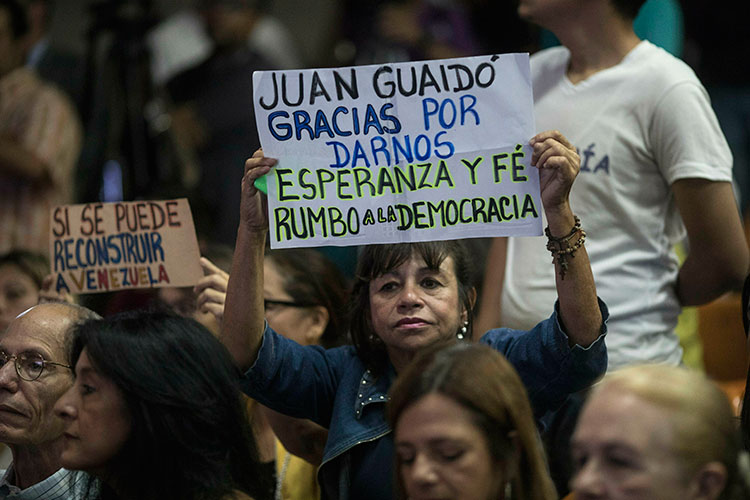 JUAN GUAIDÓ
GRACIAS POR
DARNOS
ESPERANZA Y FÉ
RUMBO A LA DEMOCRACIA
SI SE PUEDE
RECONSTRUIR
A VENEZUELA